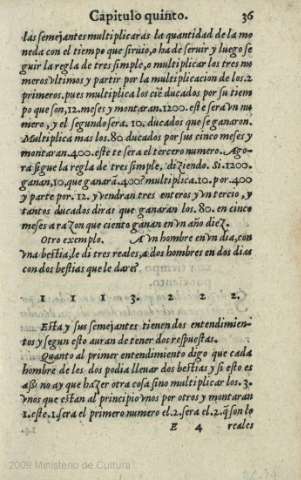 Capitulo quinto. 36
las semejantes multiplicaràs la quantidad de la mo
neda con el tiempo que siruio, o ha de seruir y luego se
guir la regla de tres simple, o multiplicar los tres no
meros vltimos y partir por la multiplicacion de los.2
primeros, pues multiplica los ciẽ ducados por su tiem
po que son, 12. meses y montaran. 1200. este sera vn nu
mero, y el segundo sera. 10. ducados que se ganaron.
Multiplica mas los. 80. ducados por sus cinco meses y
montaran. 400. este te sera el tercero numero. Ago-
ra sigue la regla de tres simple, diziendo. Si. 1200.
ganan, 10, que ganarà. 400? multiplica. 10. por 400
y parte por. 12. y vendran tres enteros y vn tercio, y
tantos ducados diras que ganaran los. 80. en cinco
meses a razon que ciento ganen en vn año diez.
Otro exemplo. A vn hombre en vn dia, con
vna bestia, le di tres reales, a dos hombres en dos dias
con dos bestias que le dare?
1 1 1 3. 2 2 2.
Esta y sus semejantes tienen dos entendimien-
tos y segun esto auran de tener dos respuestas.
Quanto al primer entendimiento digo que cada
hombre de los dos podia lleuar dos bestias y si esto es
assi no ay que hazer otra cosa sino multiplicar los. 3.
vnos que estan al principio vnos por otros y montaran
1. este. 1. sera el primero numero el. 2. sera el. 2. q̃ son lo
E 4 reales
2009 Ministerio de Cultura